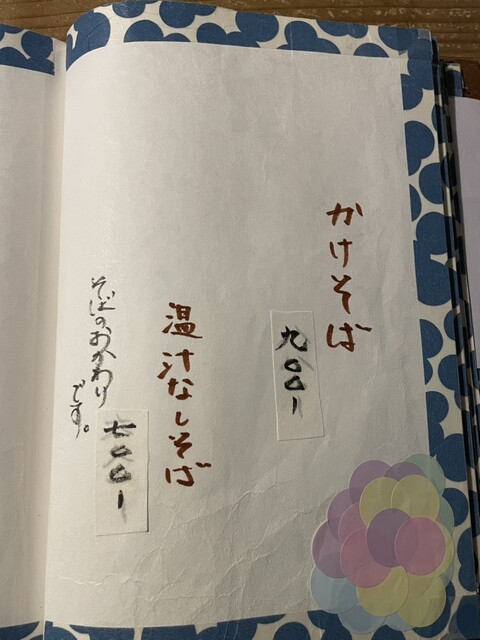 かけそば
九〇〇ー
温汁なしそば
七〇〇ー
そばのおかわり
です。